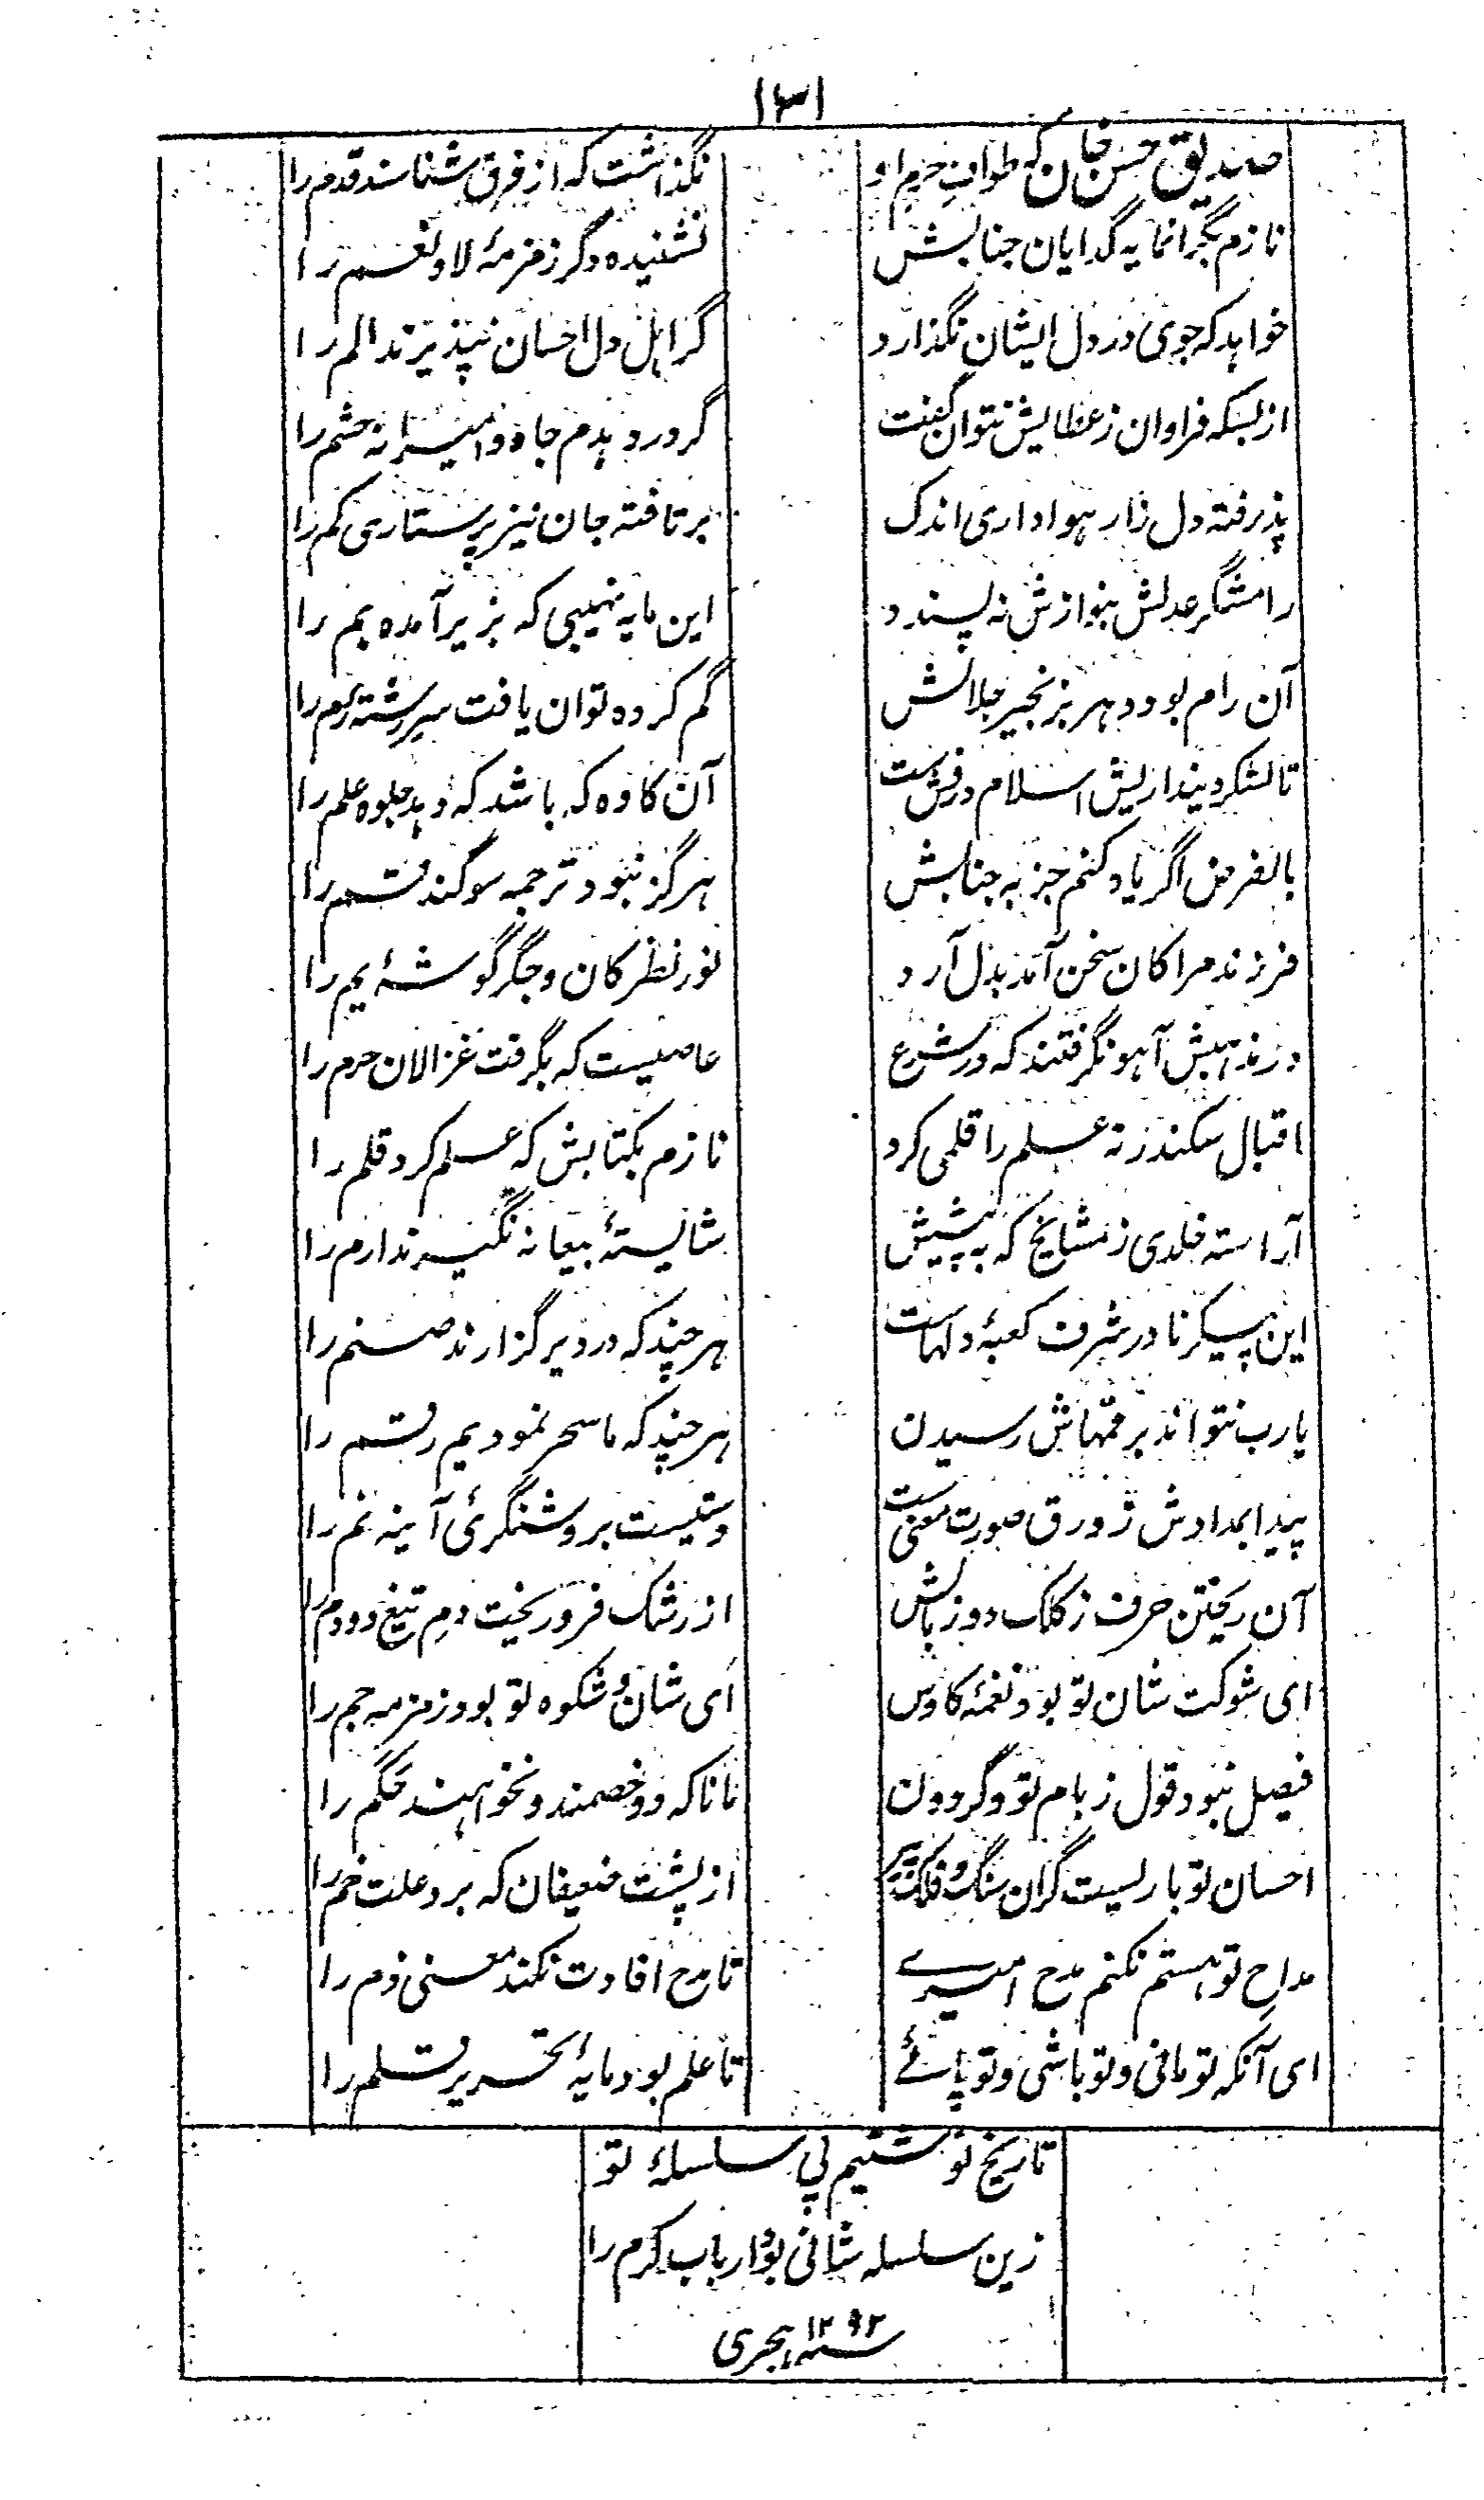 ۱۳۱
صدیق حسن خان که طوافِ حرمِ او
نگذاشت که از فرق شناسند قدم را
نازم بگرانمایه گدایان جنابش
نشنیده دگر زمزمهٔ لا و نعم را
خواهد که جوی در دل ایشان نگذارد
گر اهل دل احسان نپذیرند الم را
از بسکه فراوان ز عطایش نتوان گفت
گرورد بدم جاه و امیرانه حشم را
پذرفته دل زار هواداری اندک
برتافته جان نیز پرستاری کم را
رامشگر عدلش بنوازش نه پسندد
این مایه نهیبی که بزیر آمده بم را
آن رام بود دهر بزنجیر جلالش
گم کرده توان یافت سرِ رشتهٔ رم را
تا لشکر دینداریش اسلام درفش ست
آن کاوه که باشد که دهد جلوه علم را
بالفرض اگر یاد کنم جز به جنابش
هرگز نبود ترجمه سوگند قسم را
فرزند مرا کان سخن آمد بدل آرد
نور نظر کان و جگر گوشهٔ یم را
در مذهبش آهو نگرفتند که در شرع
عاصیست که بگرفت غزالان حرم را
اقبال سکندر نه علم را قلمی کرد
نازم بکتابش که علم کرد قلم را
آراسته خلدی ز مشایخ که به پیشش
شایستهٔ بیعانه نگیرند ارم را
این پیکر نادر شرف کعبهٔ دلهاست
هر چند که در دیر گزارند صنم را
یارب نتواند بر مهاش رسیدن
هر چند که ما سحر نمودیم رقم را
پیدا بمدادش ز ورق صورت معنی ست
دستیست بروشنگریِٔ آینه نم را
آن ریختن حرف ز کلک دو زبانش
از رشک فرو ریخت دمِ تیغ دو دم را
ای شوکت شان تو بود نغمهٔ کاوس
ای شان و شکوه تو بود زمزمه جم را
فیصل نبود قول ز بام تو و گردون
نانا که دو خصمند و نخواهند حکم را
احسان تو باریست گران سنگ و فلک پیر
از پشت ضعیفان که برد علت خم را
مداح تو هستم نکنم مدح امیرے
تا مدح افادت نکند معنی ذم را
ای آنکه تو مانی و تو باشی و تو پائے
تا علم بود مایهٔ تحریر قلم را
تاریخ نوشتیم پی سلسلهٔ تو
زین سلسله شانی بود ارباب کرم را
سنه ۱۲۹۲ ہجری